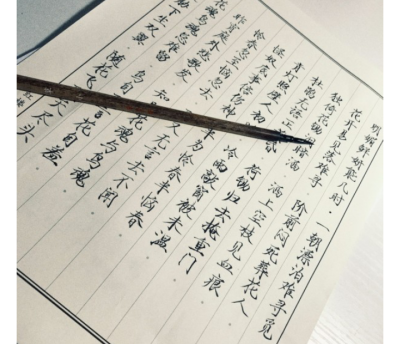 明媚鲜妍能几时.一朝漂泊难寻觅
花开易见落难寻 阶前闷死葬花人
独倚花锄 洒上空枝见血痕
杜鹃无语正 荷锄归去掩重门
青灯照壁人初 冷雨敲窗被未温
怪奴底事倍伤神 为怜春半恼春
怜春忽至恼忽去 又无言去不闻
昨宵庭外悲歌发 知 花魂与鸟魂
花魂鸟魂总难留 鸟自 花自羞
胁下生双翼 随花飞 天尽头